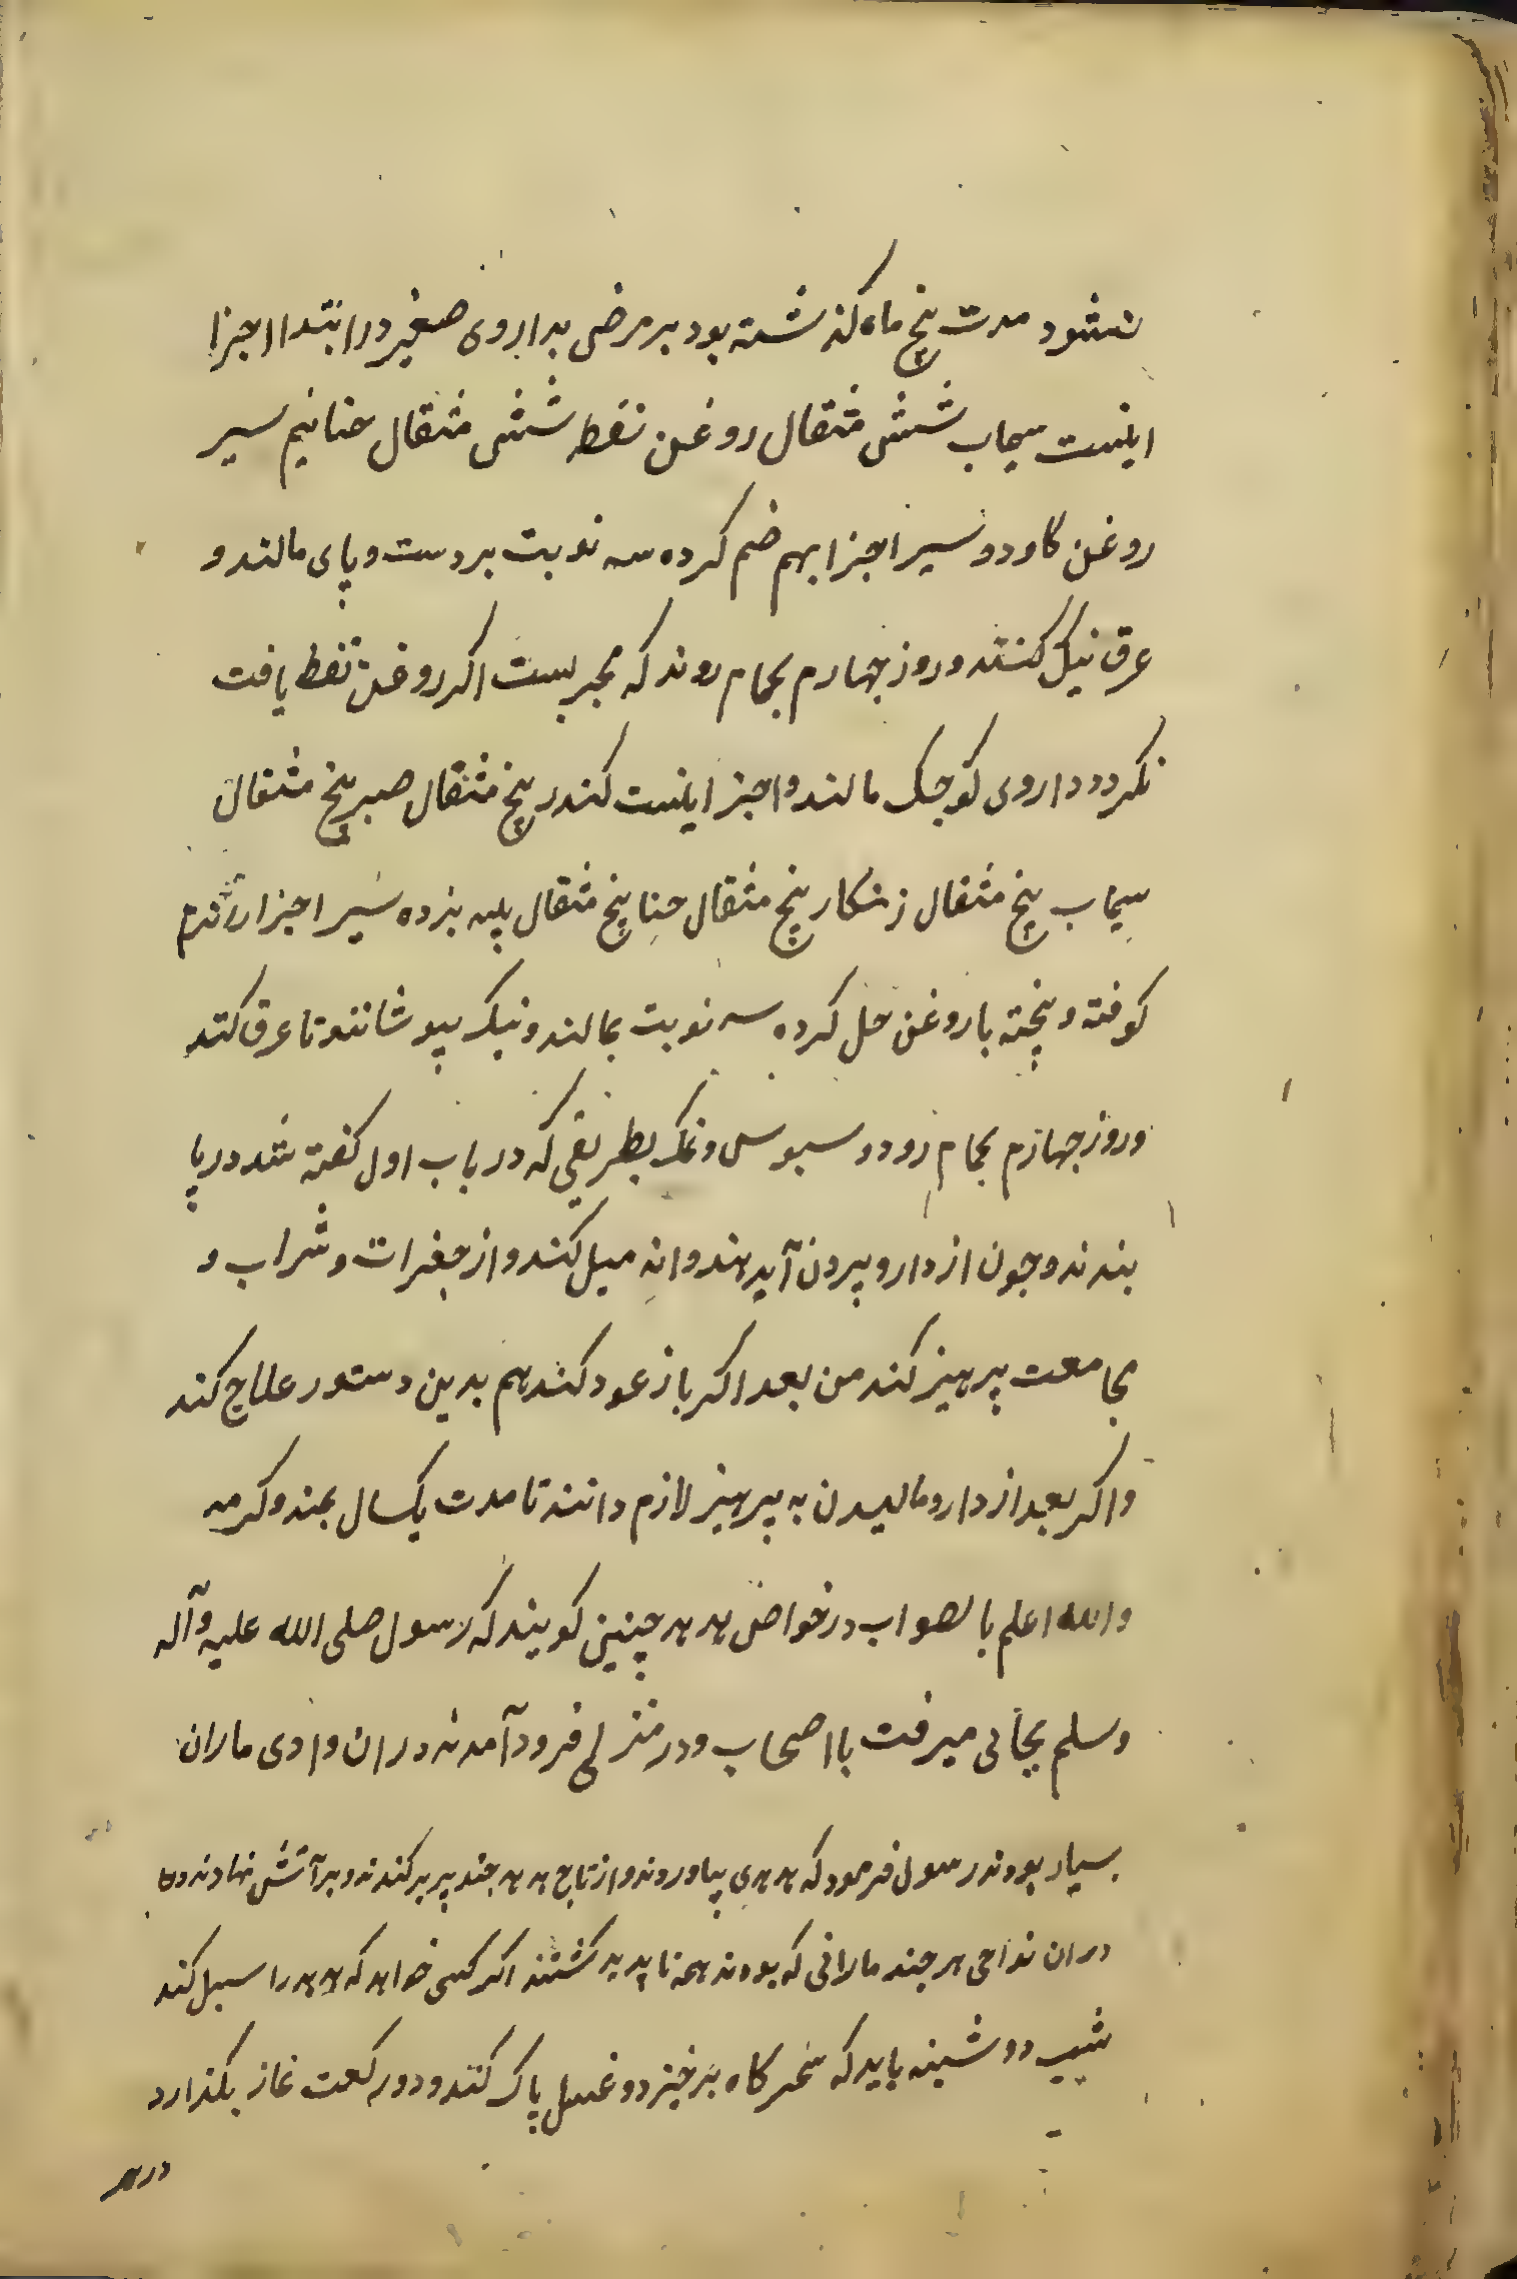 نشود مدت پنج ماه کذشته بود بر مرضی بداروی صغیر در ابتدا اجزا
اینست سیماب شش مثقال روغن نفط شش مثقال حنا نیم سیر
روغن کاو دو سیر اجزا بهم ضم کرده سه نوبت بر دست و پای مالند و
عرق نیک کنند و روز چهارم بحمام روند که مجربست اکر روغن نفط یافت
نکردد داروی کوچک مالند و اجزا اینست کندر پنج مثقال صبر پنج مثقال
سیماب پنج مثقال زنکار پنج مثقال حنا پنج مثقال پیه بز ده سیر اجزا را نرم
کوفته و پخته با روغن حل کرده سه نوبت بمالند و نیک بپوشانند تا عرق کند
و روز چهارم بحمام رود و سبوس و نمک بطریقی که در باب اول کفته شد در پا
بندند و چون از دارو بیرون آید هندوانه میل کند و از جغرات و شراب و
مجامعت پرهیز کند من بعد اکر باز عود کند هم بدین دستور علاج کند
و اکر بعد از دارو مالیدن به پرهیز لازم دانند تا مدت یکسال بمنه و کرمه
والله اعلم بالصواب در خواص هدهد چنین کویند که رسول صلی الله علیه و آله
وسلم بجائی میرفت با اصحاب و در منزلی فرود آمدند در ان وادی ماران
بسیار بودند رسول فرمود که هدهدی بیاوردند و از تاج هدهد چند پر برکندند و بر آتش نهادند
در ان نواحی هر چند مارانی که بودند همه ناپدید کشتند اکر کسی خواهد که هدهد را سبیل کند
شب دوشنبه باید که سحرکاه برخیزد و غسل پاک کند و دو رکعت نماز بکذارد
در هر